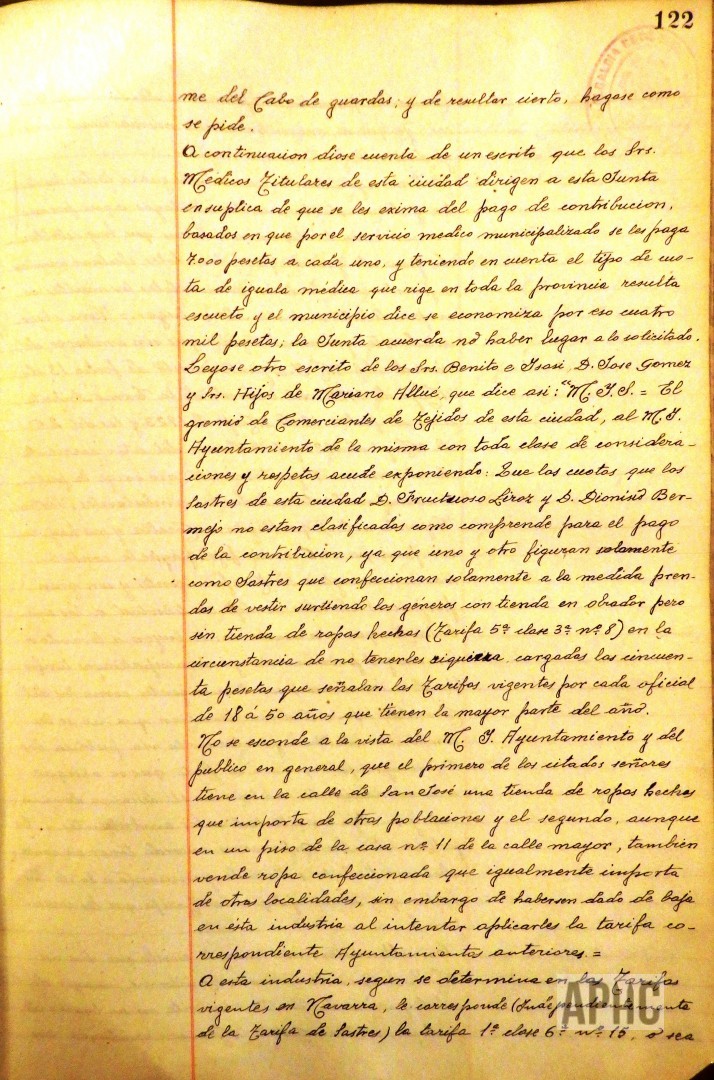 122
me del Cabo de guardas; y de resultar cierto, hagase como
se pide.
A continuacion diose cuenta de un escrito que los Srs.
Medicos Titulares de esta ciudad dirigen a esta Junta
en suplica de que se les exima del pago de contribucion,
basados en que por el servicio medico municipalizado se les paga
7.000 pesetas a cada uno, y teniendo en cuenta el tipo de cuo-
ta de iguala médica que rige en toda la provincia resulta
escueto y el municipio dice se economiza por eso cuatro
mil pesetas; la Junta acuerda no haber lugar a lo solicitado.
Leyose otro escrito de los Srs. Benito e Isasi, D. Jose Gomez
y Srs. Hijos de Mariano Allué, que dice asi: "M. I. S. = El
gremio de Comerciantes de Tejidos de esta ciudad, al M. I.
Ayuntamiento de la misma con toda clase de considera-
ciones y respetos acude exponiendo: Que las cuotas que los
Sastres de esta ciudad D. Fructuoso Liroz y D. Dionisio Ber-
mejo no estan clasificados como comprende para el pago
de la contribucion, ya que uno y otro figuran solamente
como Sastres que confeccionan solamente a la medida pren-
das de vestir surtiendo los géneros con tienda en obrador pero
sin tienda de ropas hechas (Tarifa 5ª clase 3ª nº 8) en la
circunstancia de no tenerles siquiera cargadas las cincuen-
ta pesetas que señalan las Tarifas vigentes por cada oficial
de 18 á 50 años que tienen la mayor parte del año.
No se esconde a la vista del M. I. Ayuntamiento y del
publico en general, que el primero de los citados señores
tiene en la calle de San José una tienda de ropas hechas
que importa de otras poblaciones y el segundo, aunque
en un piso de la casa nº 11 de la calle mayor, tambien
vende ropa confeccionada que igualmente importa
de otras localidades, sin embargo de habersen dado de baja
en esta industria al intentar aplicarles la tarifa co-
rrespondiente Ayuntamientos anteriores. =
A esta industria, segun se determina en las Tarifas
vigentes en Navarra, le corresponde (Independientemente
de la Tarifa de Sastres) la tarifa 1ª clase 6ª nº 15, o sea
APHC